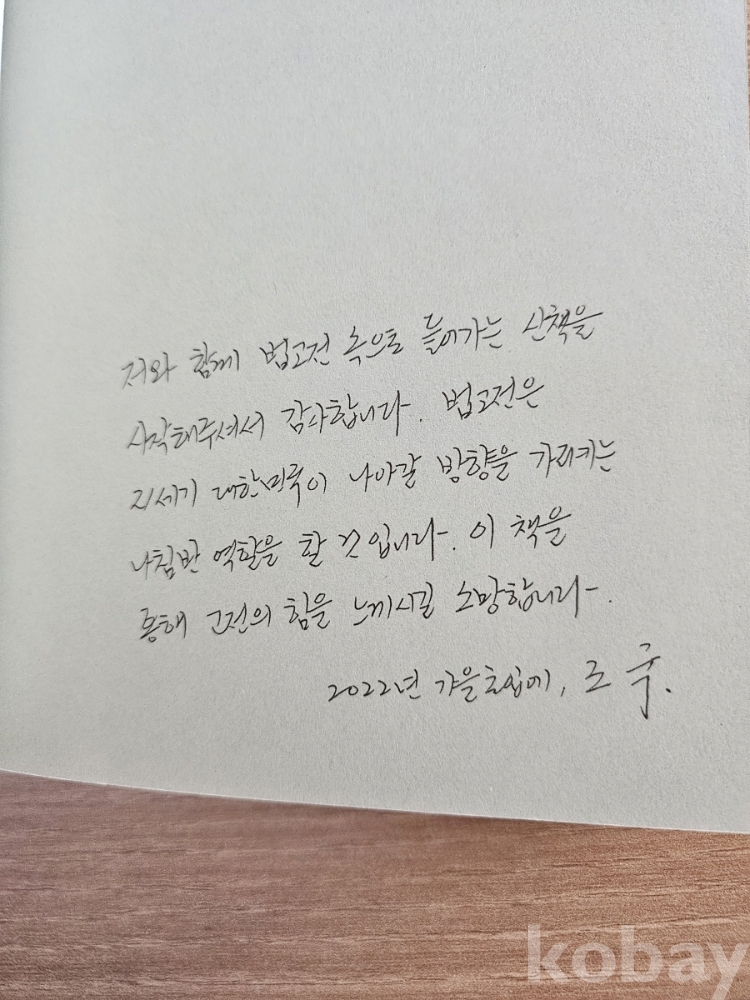 저와 함께 법고전 속으로 들어가는 산책을
시작해주셔서 감사합니다. 법고전은
21세기 대한민국이 나아갈 방향을 가리키는
나침반 역할을 할 것입니다. 이 책을
통해 고전의 힘을 느끼시길 소망합니다.
2022년 가을초입에, 조 국.
kobay